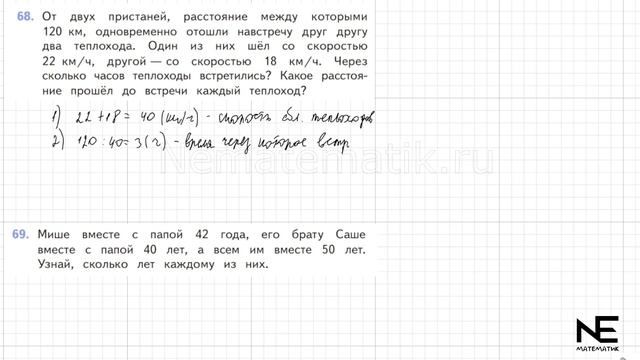 68. От двух пристаней, расстояние между которыми
120 км, одновременно отошли навстречу друг другу
два теплохода. Один из них шёл со скоростью
22 км/ч, другой — со скоростью 18 км/ч. Через
сколько часов теплоходы встретились? Какое расстоя-
ние прошёл до встречи каждый теплоход?
1) 22+18= 40 (км/ч) - скорость сбл. теплоходов
2) 120:40=3(ч) - время через которое встр
Nematematik.ru
69. Мише вместе с папой 42 года, его брату Саше
вместе с папой 40 лет, а всем им вместе 50 лет.
Узнай, сколько лет каждому из них.
NE
МАТЕМАТИК